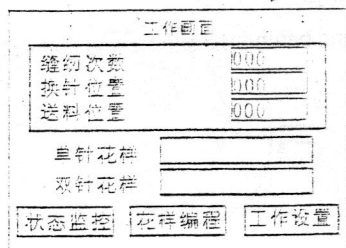 工作画面
缝纫次数 000
换针位置 000
送料位置 000
单针花样
双针花样
状态监控 花样编程 工作设置